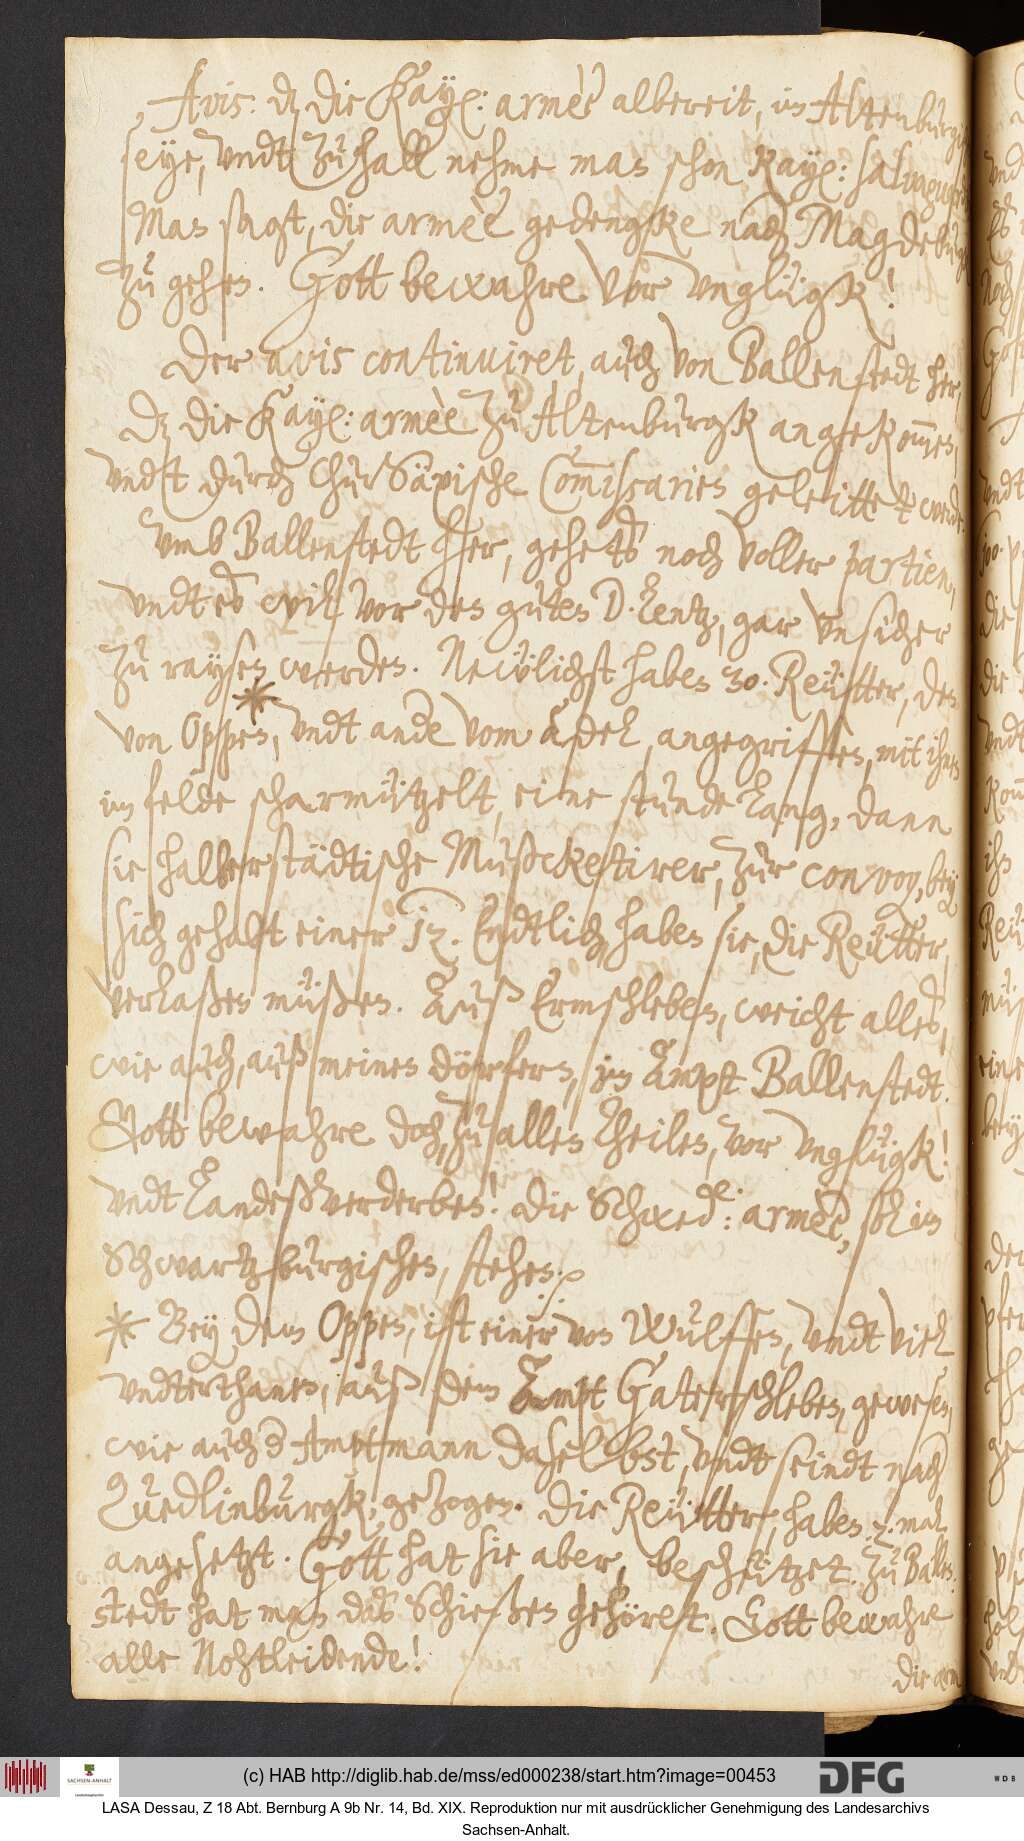 Avis: dz die Kayß: armèè albereit, im Altenburgischen
seye, vndt zu hall nehme man schon Kayß: salvaguardien
Man sagt, die armèè gedengke nach Magdeburgk
zu gehen. Gott bewahre vor vnglügk!
Der avis continuiret, auch von Ballenstedt her,
dz die Kayß: armèè zu Altenburgk angekom̄en,
vndt durch ChurSäxische Com̄issarien geleittet werde.
Vmb Ballenstedt her, gehets noch voller partien,
vndt es will vor den guten D. Lentz, gar vnsicher
zu raysen werden. Newlichst haben 30. Reütter, den
von Oppen, * vndt ande vom Adel, angegriffen, mit ihnen
im felde scharmützelt, eine stunde lang, dann
sie halberstädtische Mußcketirer, zur convoy, bey
sich gehabt einer 12. Endtlich haben sie, die Reütter,
verlaßen müßen. Auß Ermßleben, weicht alles,
wie auch, auß meinen dörfern, im Ampt Ballenstedt.
Gott bewahre doch, zu allen theilen, vor vnglügk!
vndt Landeßverderben! Die Schwed: armèè, sol im
Schwartzburgischen, stehen.
* Bey dem Oppen, ist einer von Wulffen, vndt viel
vnderthanen, auß dem Ampt Gaterßleben, gewesen,
wie auch d Amptmann daselbst, vndt seindt nach
Quedlinburgk, gezogen. Die Reütter, haben 2. mal
angesetzt. Gott hat sie aber, beschützet. Zu Ballen¬
stedt hat man das Schießen gehörett. Gott bewahre
alle Nohtleidende!
Die arm
(c) HAB http://diglib.hab.de/mss/ed000238/start.htm?image=00453
SACHSEN-ANHALT
DFG
WDB
LASA Dessau, Z 18 Abt. Bernburg A 9b Nr. 14, Bd. XIX. Reproduktion nur mit ausdrücklicher Genehmigung des Landesarchivs
Sachsen-Anhalt.